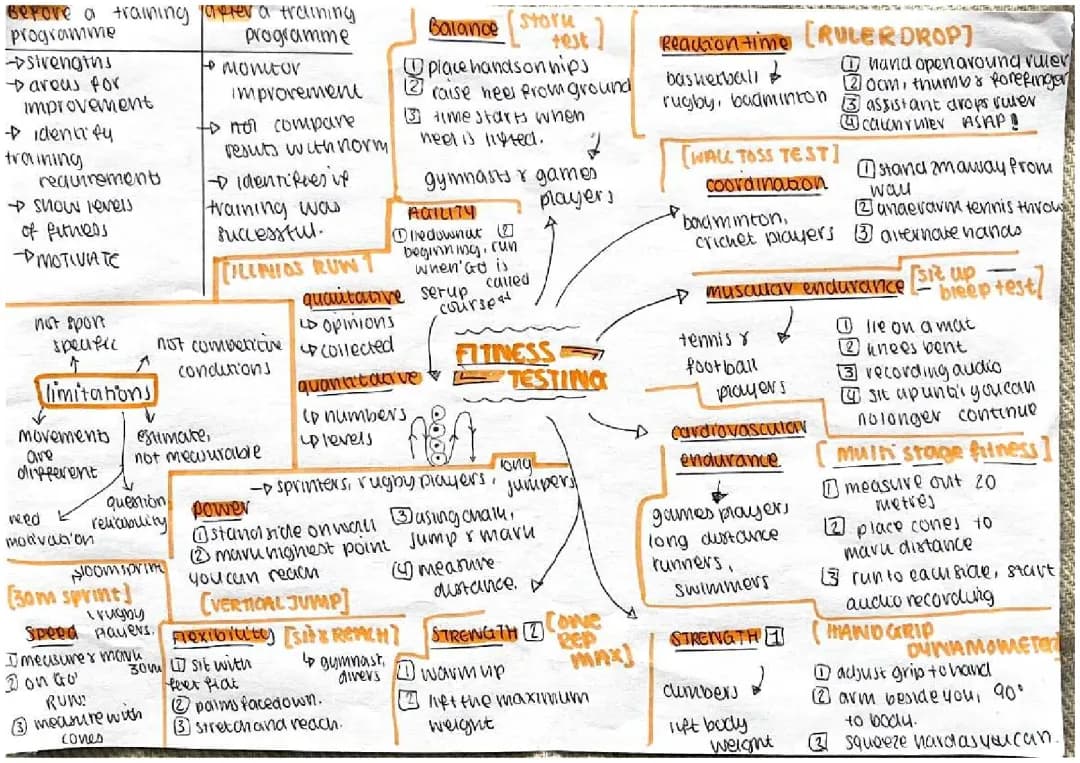 Before a training
programme
→ strengths
→ areas for
improvement
→ identify
training
requirements
→ show levels
of fitness
→ MOTIVATE
after a training
programme
→ monitor
improvement
→ not compare
results with norm
→ identifies if
training was
successful.
Balance [stork
test]
① place hands on hips
② raise heel from ground
③ time starts when
heel is lifted.
gymnasts & games
players
Reaction time [RULER DROP]
basketball
rugby, badminton
① hand open around ruler
② 0cm, thumb & forefinger
③ assistant drops ruler
④ catch ruler ASAP!
[WALL TOSS TEST]
coordination
badminton,
cricket players
① stand 2m away from
wall
② underarm tennis throw
③ alternate hands
AGILITY
① lie down at ②
beginning, run
when 'GO' is
called
set up
course
[ILLINIOS RUN]
qualitative
↳ opinions
↳ collected
quantitative
↳ numbers
↳ levels
FITNESS
TESTING
muscular endurance [sit up
bleep test]
tennis &
football
players
① lie on a mat
② knees bent
③ recording audio
④ sit up until you can
no longer continue
not sport
specific
not competitive
conditions
limitations
movements
are
different
estimate,
not measurable
question
reliability
need
motivation
cardiovascular
endurance
games players
long distance
runners,
swimmers
[multi stage fitness]
① measure out 20
metres
② place cones to
mark distance
③ run to each side, start
audio recording
→ sprinters, rugby players, long
jumpers
power
① stand side on wall
② mark highest point
you can reach
③ using chalk,
jump & mark
④ measure
distance.
[VERTICAL JUMP]
100m sprint
[30m sprint]
rugby
players.
Speed
① measure & mark
30m
② on 'GO'
RUN!
③ measure with
cones
Flexibility [SIT & REACH]
↳ gymnast,
divers
① sit with
feet flat
② palms facedown.
③ stretch and reach.
STRENGTH [2] [ONE
REP
MAX]
① warm up
② lift the maximum
weight
STRENGTH [1]
climbers
lift body
weight
[HANDGRIP
DYNAMOMETER]
① adjust grip to hand
② arm beside you, 90°
to body.
③ squeeze hard as you can.